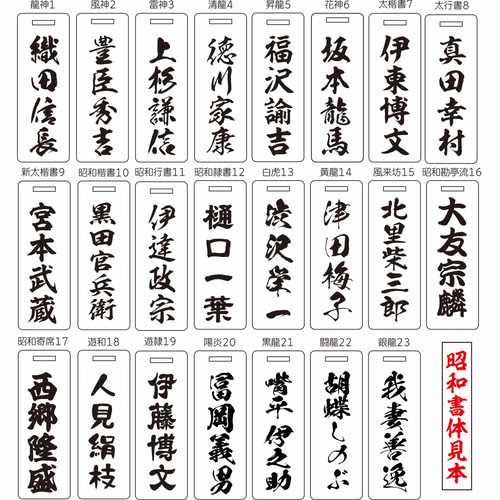 龍神1
風神2
雷神3
清龍4
昇龍5
花神6
太楷書7
太行書8
織田信長
豊臣秀吉
上杉謙信
徳川家康
福沢諭吉
坂本龍馬
伊東博文
真田幸村
新太楷書9
昭和楷書10
昭和行書11
昭和隷書12
白虎13
黄龍14
風来坊15
昭和勘亭流16
宮本武蔵
黒田官兵衛
伊達政宗
樋口一葉
渋沢栄一
津田梅子
北里柴三郎
大友宗麟
昭和寄席17
遊和18
遊隷19
陽炎20
黒龍21
闘龍22
銀龍23
西郷隆盛
人見絹枝
伊藤博文
冨岡義男
嘴平伊之助
胡蝶しのぶ
我妻善逸
昭和書体見本